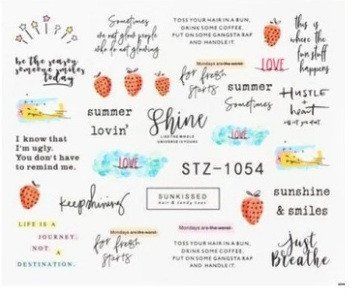 Sometimes
we not glow people
who do not glowing
TOSS YOUR HAIR IN A BUN,
DRINK SOME COFFEE,
PUT ON SOME GANGSTA RAP
AND HANDLE IT.
this is
where the
fun stuff
happens
be the reason
someone smiles
today
Mondays are the worst
for fresh
starts
LOVE
HUSTLE
+
heart
will set you apart
summer
lovin'
Shine
LIKE THE WHOLE
UNIVERSE IS YOURS
summer
Sometimes
I know that
I'm ugly.
You don't have
to remind me.
LOVE
LOVE
STZ-1054
keep shining
SUNKISSED
sunshine
& smiles
LIFE IS A
JOURNEY.
NOT A
DESTINATION.
Mondays are the worst
for fresh
starts
TOSS YOUR HAIR IN A BUN,
DRINK SOME COFFEE,
PUT ON SOME GANGSTA RAP
AND HANDLE IT.
Just
Breathe